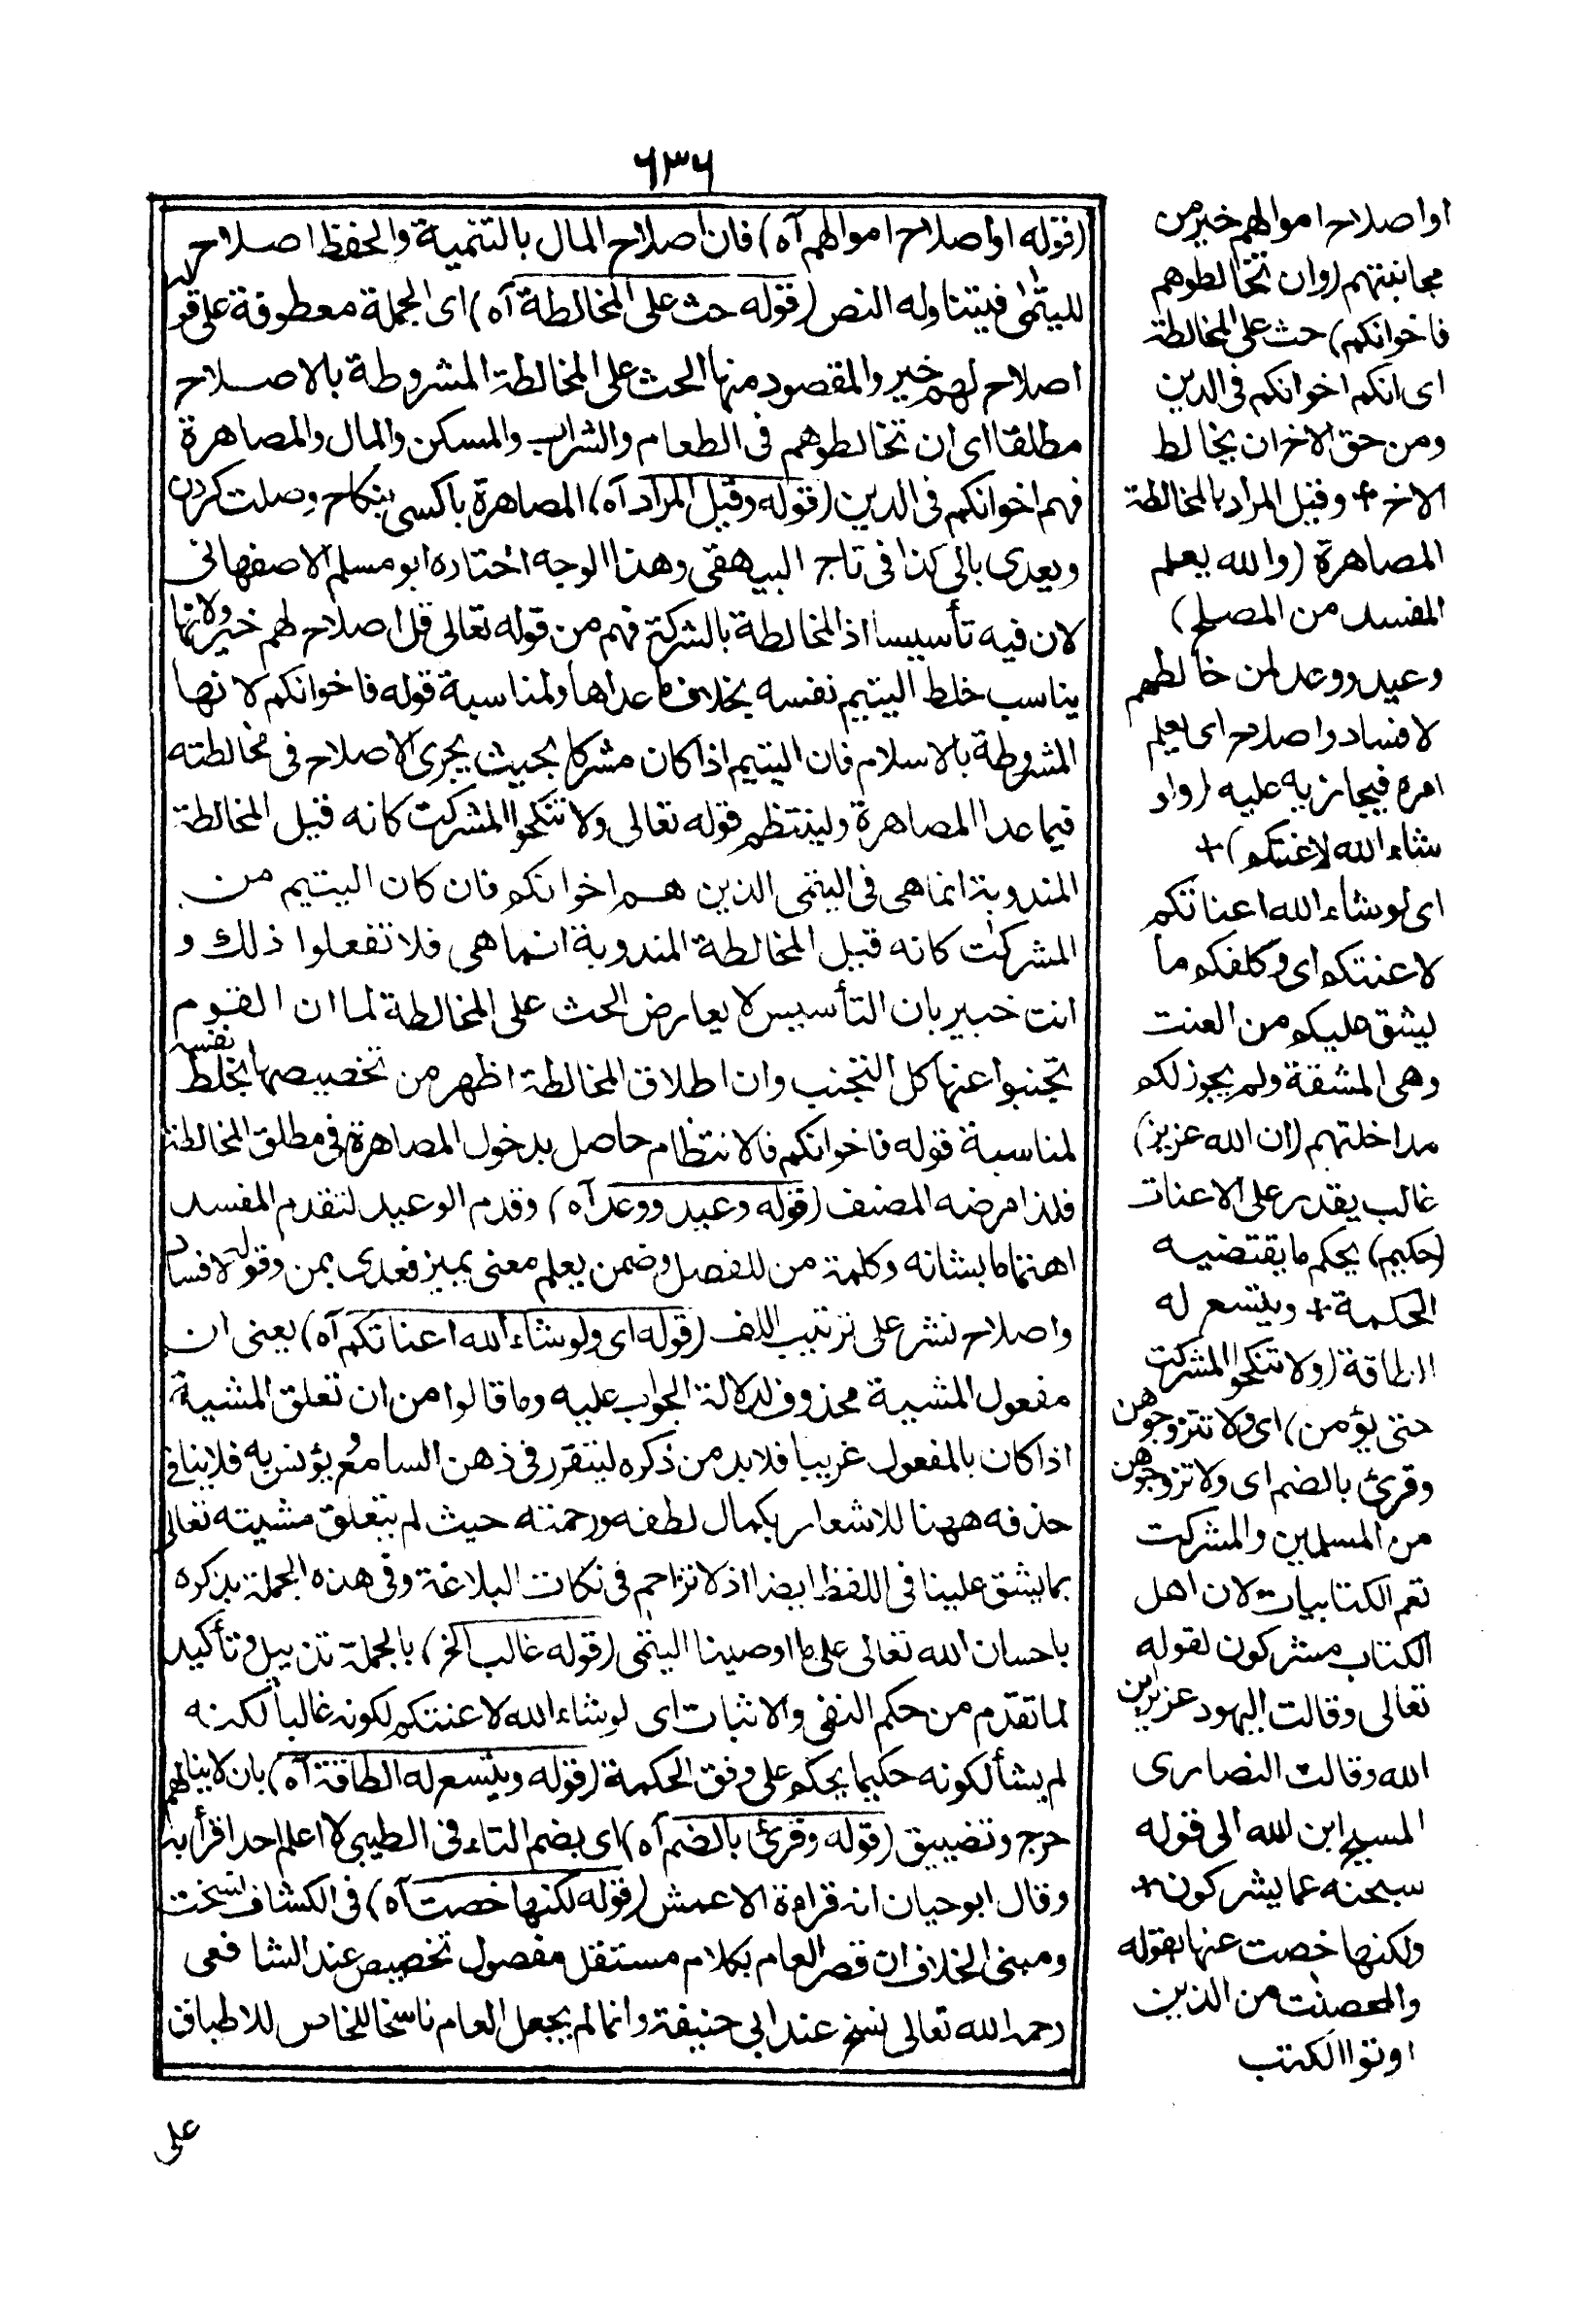 ٦٣٦
(قوله او اصلاح اموالهم آه) فان اصلاح المال بالتنمية والحفظ اصلاح
لليتمى فيتناوله النص (قوله حث على المخالطة آه) اى الجملة معطوفة على قوله
اصلاح لهم خير والمقصود منها الحث على المخالطة المشروطة بالاصلاح
مطلقا اى ان تخالطوهم فى الطعام والشراب والمسكن والمال والمصاهرة
فهم اخوانكم فى الدين (قوله وقيل المراد آه) المصاهرة باكسى بنكاح وصلت كردن
ويعدى بالى كذا فى تاج البيهقى وهذا الوجه اختاره ابو مسلم الاصفهانى
لان فيه تأسيسا اذ المخالطة بالشركة فهم من قوله تعالى قل اصلاح لهم خير ولانها
يناسب خلط اليتيم نفسه بخلاف ما عداها ولمناسبة قوله فاخوانكم لانها
المشروطة بالاسلام فان اليتيم اذا كان مشركا بحيث يجرى الاصلاح فى مخالطته
فيما عدا المصاهرة ولينتظم قوله تعالى ولا تنكحوا المشركت كانه قيل المخالطة
المندوبة انما هى فى اليتمى الذين هم اخوانكم فان كان اليتيم من
المشركت كانه قيل المخالطة المندوبة انما هى فلا تفعلوا ذلك و
انت خبير بان التأسيس لا يعارض الحث على المخالطة لما ان القوم
تجنبوا عنها كل التجنب وان اطلاق المخالطة اظهر من تخصيصها بخلط نفسه
لمناسبة قوله فاخوانكم فالانتظام حاصل بدخول المصاهرة فى مطلق المخالطة
فلذا مرضه المصنف (قوله وعيد ووعد آه) وقدم الوعيد لتقدم المفسد
اهتماما بشانه وكلمة من للفصل وضمن يعلم معنى يميز فعدى بمن وقوله لافساد
واصلاح نشر على ترتيب اللف (قوله اى ولو شاء الله اعناتكم آه) يعنى ان
مفعول المشية محذوف لدلالة الجواب عليه وما قالوا من ان تعلق المشية
اذا كان بالمفعول غريبا فلابد من ذكره ليتقرر فى ذهن السامع ويؤنس به فلا ينافى
حذفه ههنا للاشعار بكمال لطفه ورحمته حيث لم يتعلق مشيته تعالى
بما يشق علينا فى اللفظ ايضا اذ لا تزاحم فى نكات البلاغة وفى هذه الجملة بذكره
باحسان الله تعالى على ما اوصينا اليتمى (قوله غالب الخ) بالجملة تذييل وتأكيد
لما تقدم من حكم النفى والاثبات اى لو شاء الله لاعنتكم لكونه غالبا لكنه
لم يشأ لكونه حكيما يحكم على وفق الحكمة (قوله ويتسع له الطاقة آه) بان لا ينالهم
حرج وتضييق (قوله وقرئ بالضم آه) اى بضم التاء فى الطيبى لا اعلم احدا قرأ به
وقال ابو حيان انه قراءة الاعمش (قوله لكنها خصت آه) فى الكشاف نسخت
ومبنى الخلاف ان قصر العام بكلام مستقل مفصول تخصيص عند الشافعى
رحمه الله تعالى نسخ عند ابى حنيفة وانما لم يجعل العام ناسخا للخاص للاطباق
على
او اصلاح اموالهم خير من
مجانبتهم (وان تخالطوهم
فاخوانكم) حث على المخالطة
اى انكم اخوانكم فى الدين
ومن حق الاخ ان يخالط
الاخ + وقيل المراد بالمخالطة
المصاهرة (والله يعلم
المفسد من المصلح)
وعيد ووعد لمن خالطهم
لافساد واصلاح اى يعلم
امره فيجازيه عليه (ولو
شاء الله لاعنتكم) +
اى لو شاء الله اعناتكم
لاعنتكم اى وكلفكم ما
يشق عليكم من العنت
وهى المشقة ولم يجوز لكم
مداخلتهم (ان الله عزيز)
غالب يقدر على الاعنات
(حكيم) يحكم ما يقتضيه
الحكمة + ويتسع له
الطاقة (ولا تنكحوا المشركت
حتى يؤمن) اى ولا تتزوجوهن
وقرئ بالضم اى ولا تزوجوهن
من المسلمين والمشركت
تعم الكتابيات لان اهل
الكتاب مشركون لقوله
تعالى وقالت اليهود عزير ابن
الله وقالت النصارى
المسيح ابن الله الى قوله
سبحنه عما يشركون +
ولكنها خصت عنها بقوله
والمحصنت من الذين
اوتوا الكتب